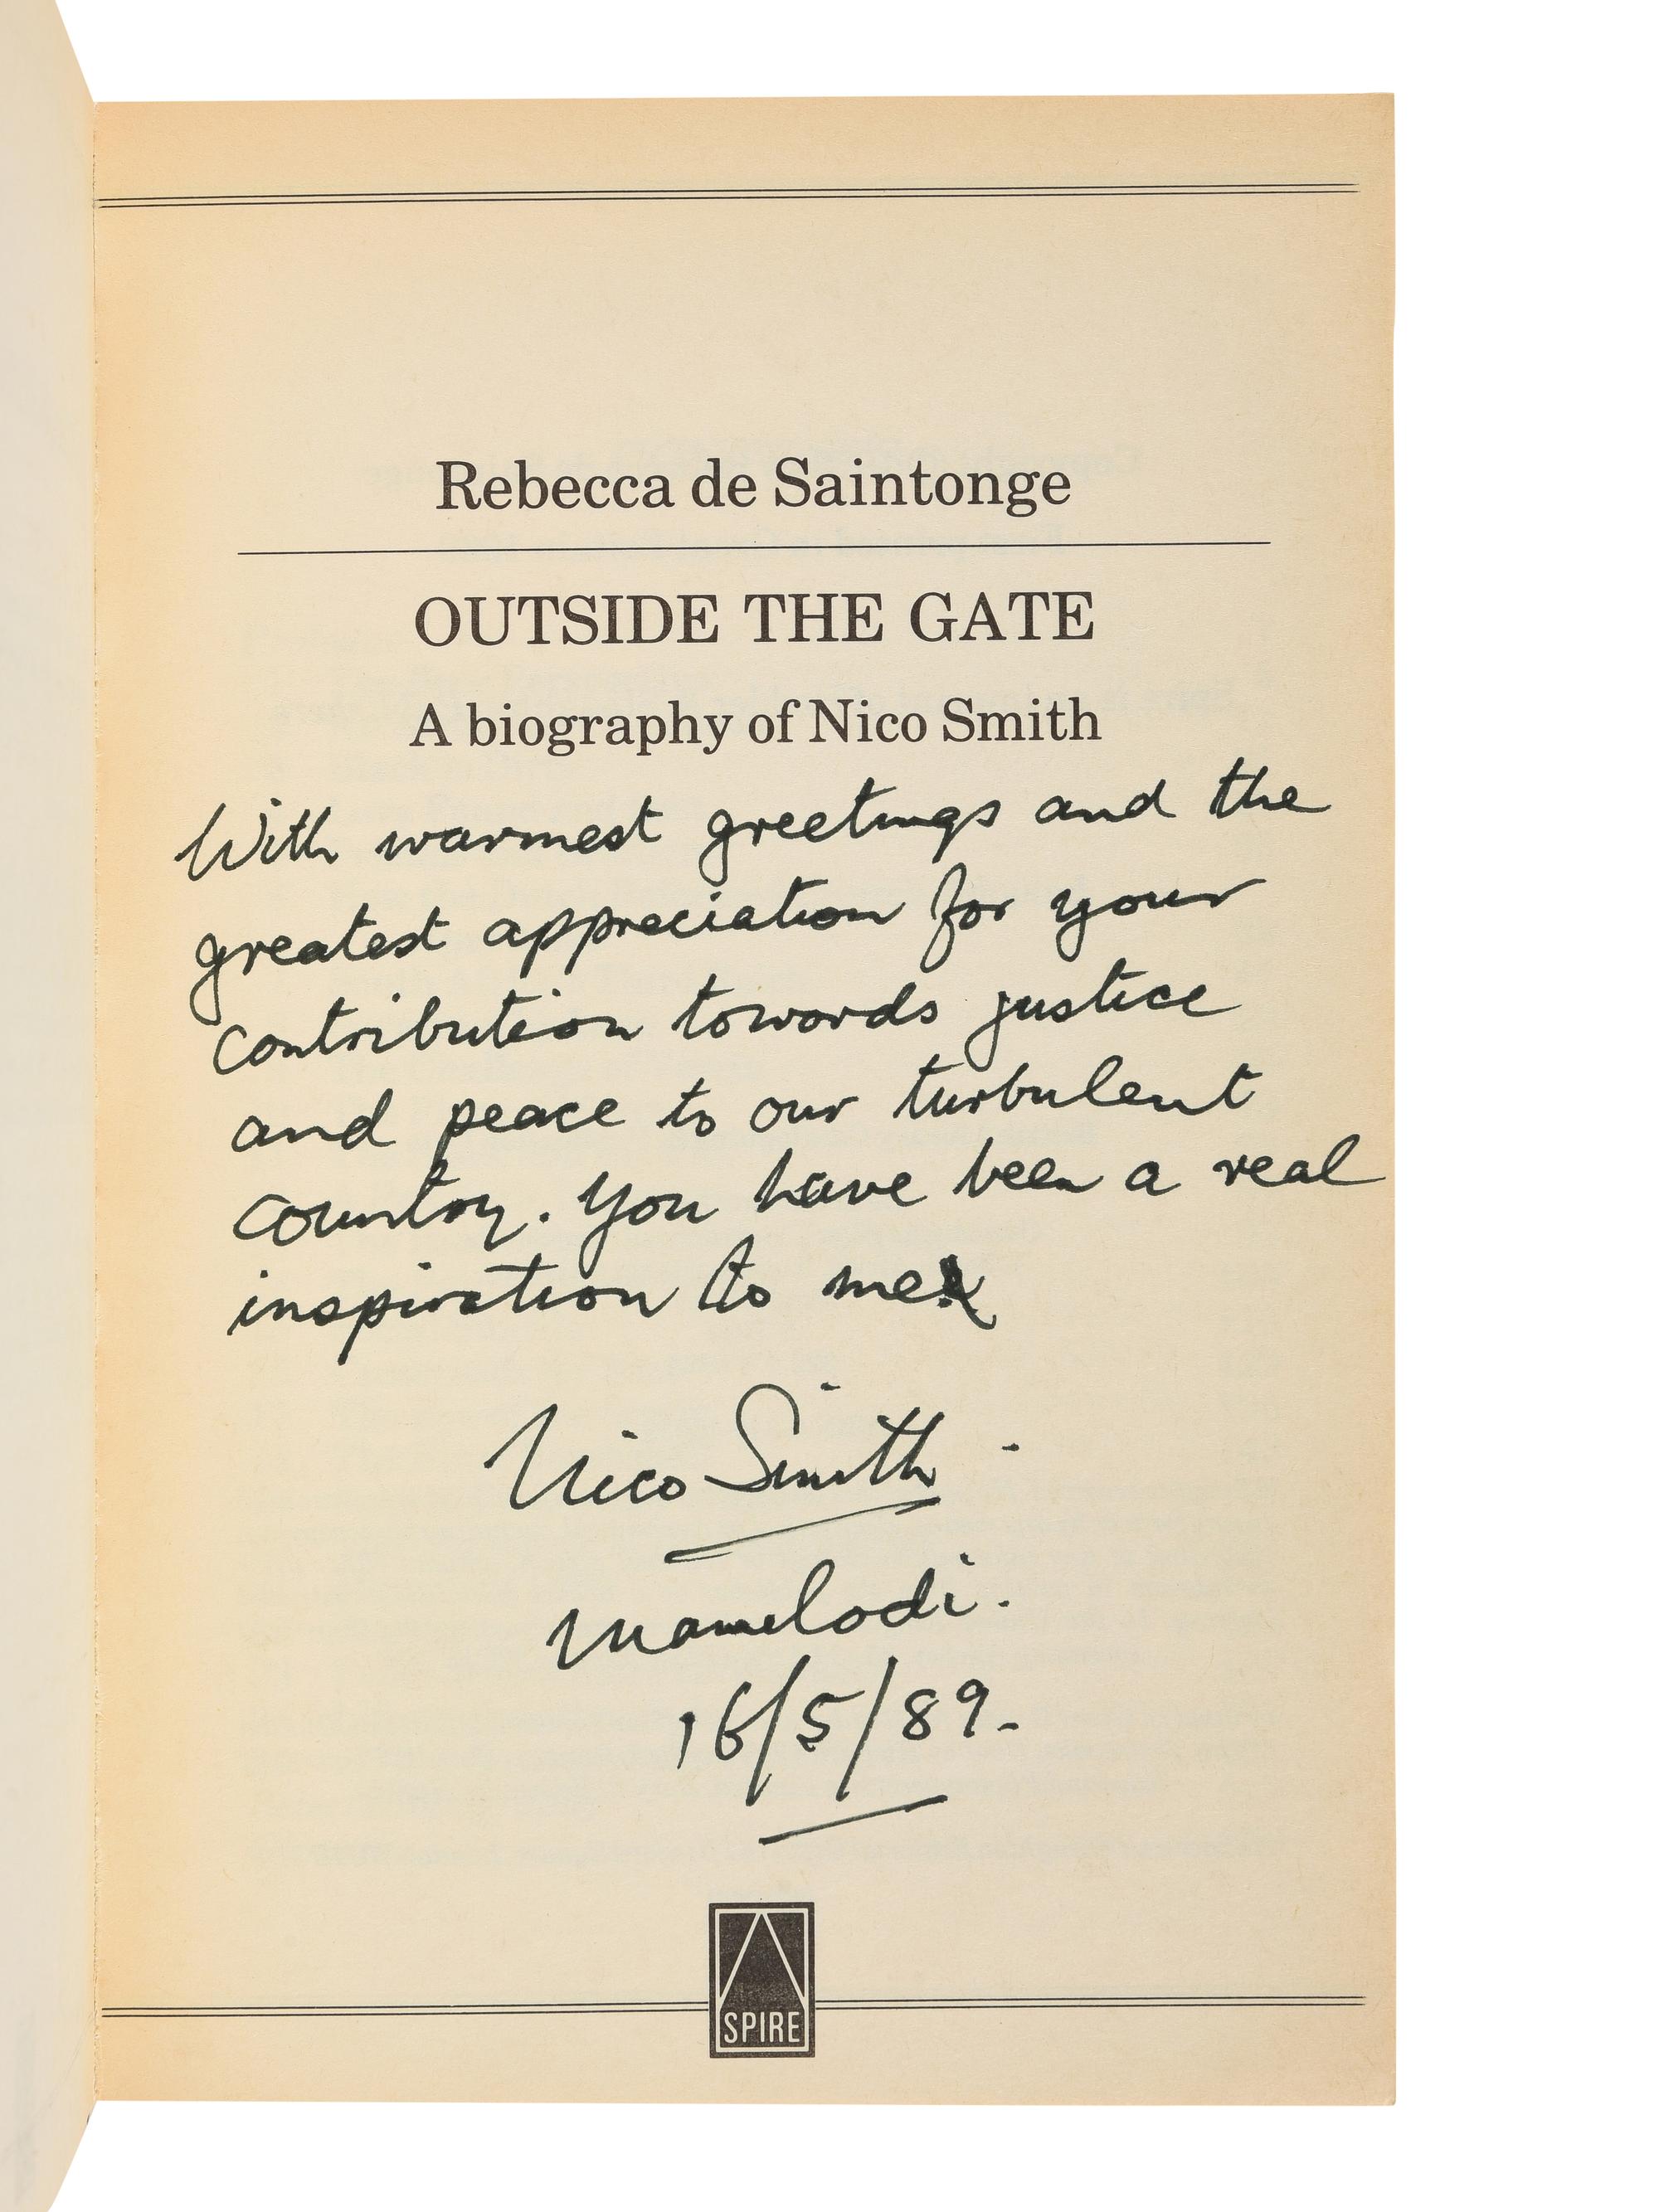 Rebecca de Saintonge
OUTSIDE THE GATE
A biography of Nico Smith
With warmest greetings and the
greatest appreciation for your
contribution towards justice
and peace to our turbulent
country. You have been a real
inspiration to me
Nico Smith
Mamelodi.
16/5/89.
SPIRE